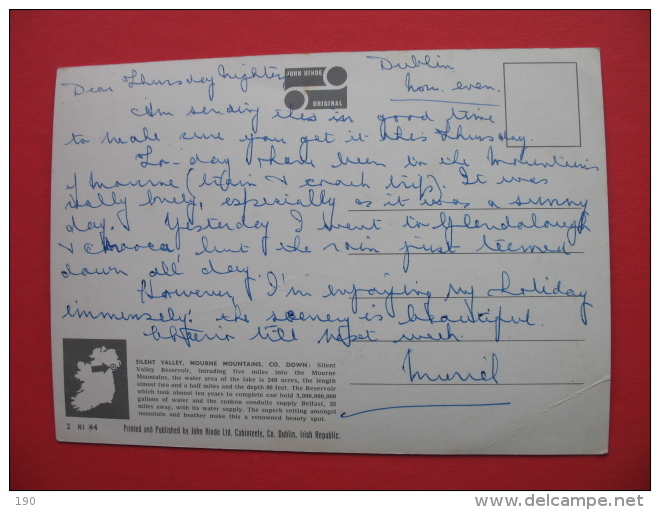 Dublin
Mon. even.
JOHN HINDE
ORIGINAL
Dear Thursday Nighters
Am sending this in good time
to make sure you get it this Thursday.
To-day I have been to the Mountains
of Mourne (train & coach trip). It was
really lovely, especially as it was a sunny
day. Yesterday I went to Glendalough
& Avoca, but the rain just teemed
down all day.
However, I'm enjoying my holiday
immensely: the scenery is beautiful.
Cheerio till next week.
Muriel
SILENT VALLEY, MOURNE MOUNTAINS, CO. DOWN; Silent
Valley Reservoir, intruding five miles into the Mourne
Mountains, the water area of the lake is 240 acres, the length
almost two and a half miles and the depth 80 feet. The Reservoir
which took almost ten years to complete can hold 3,000,000,000
gallons of water and the sunken conduits supply Belfast, 35
miles away, with its water supply. The superb setting amongst
mountain and heather make this a renowned beauty spot.
2 NI 44
Printed and Published by John Hinde Ltd. Cabinteely, Co. Dublin, Irish Republic.
190
www.delcampe.net